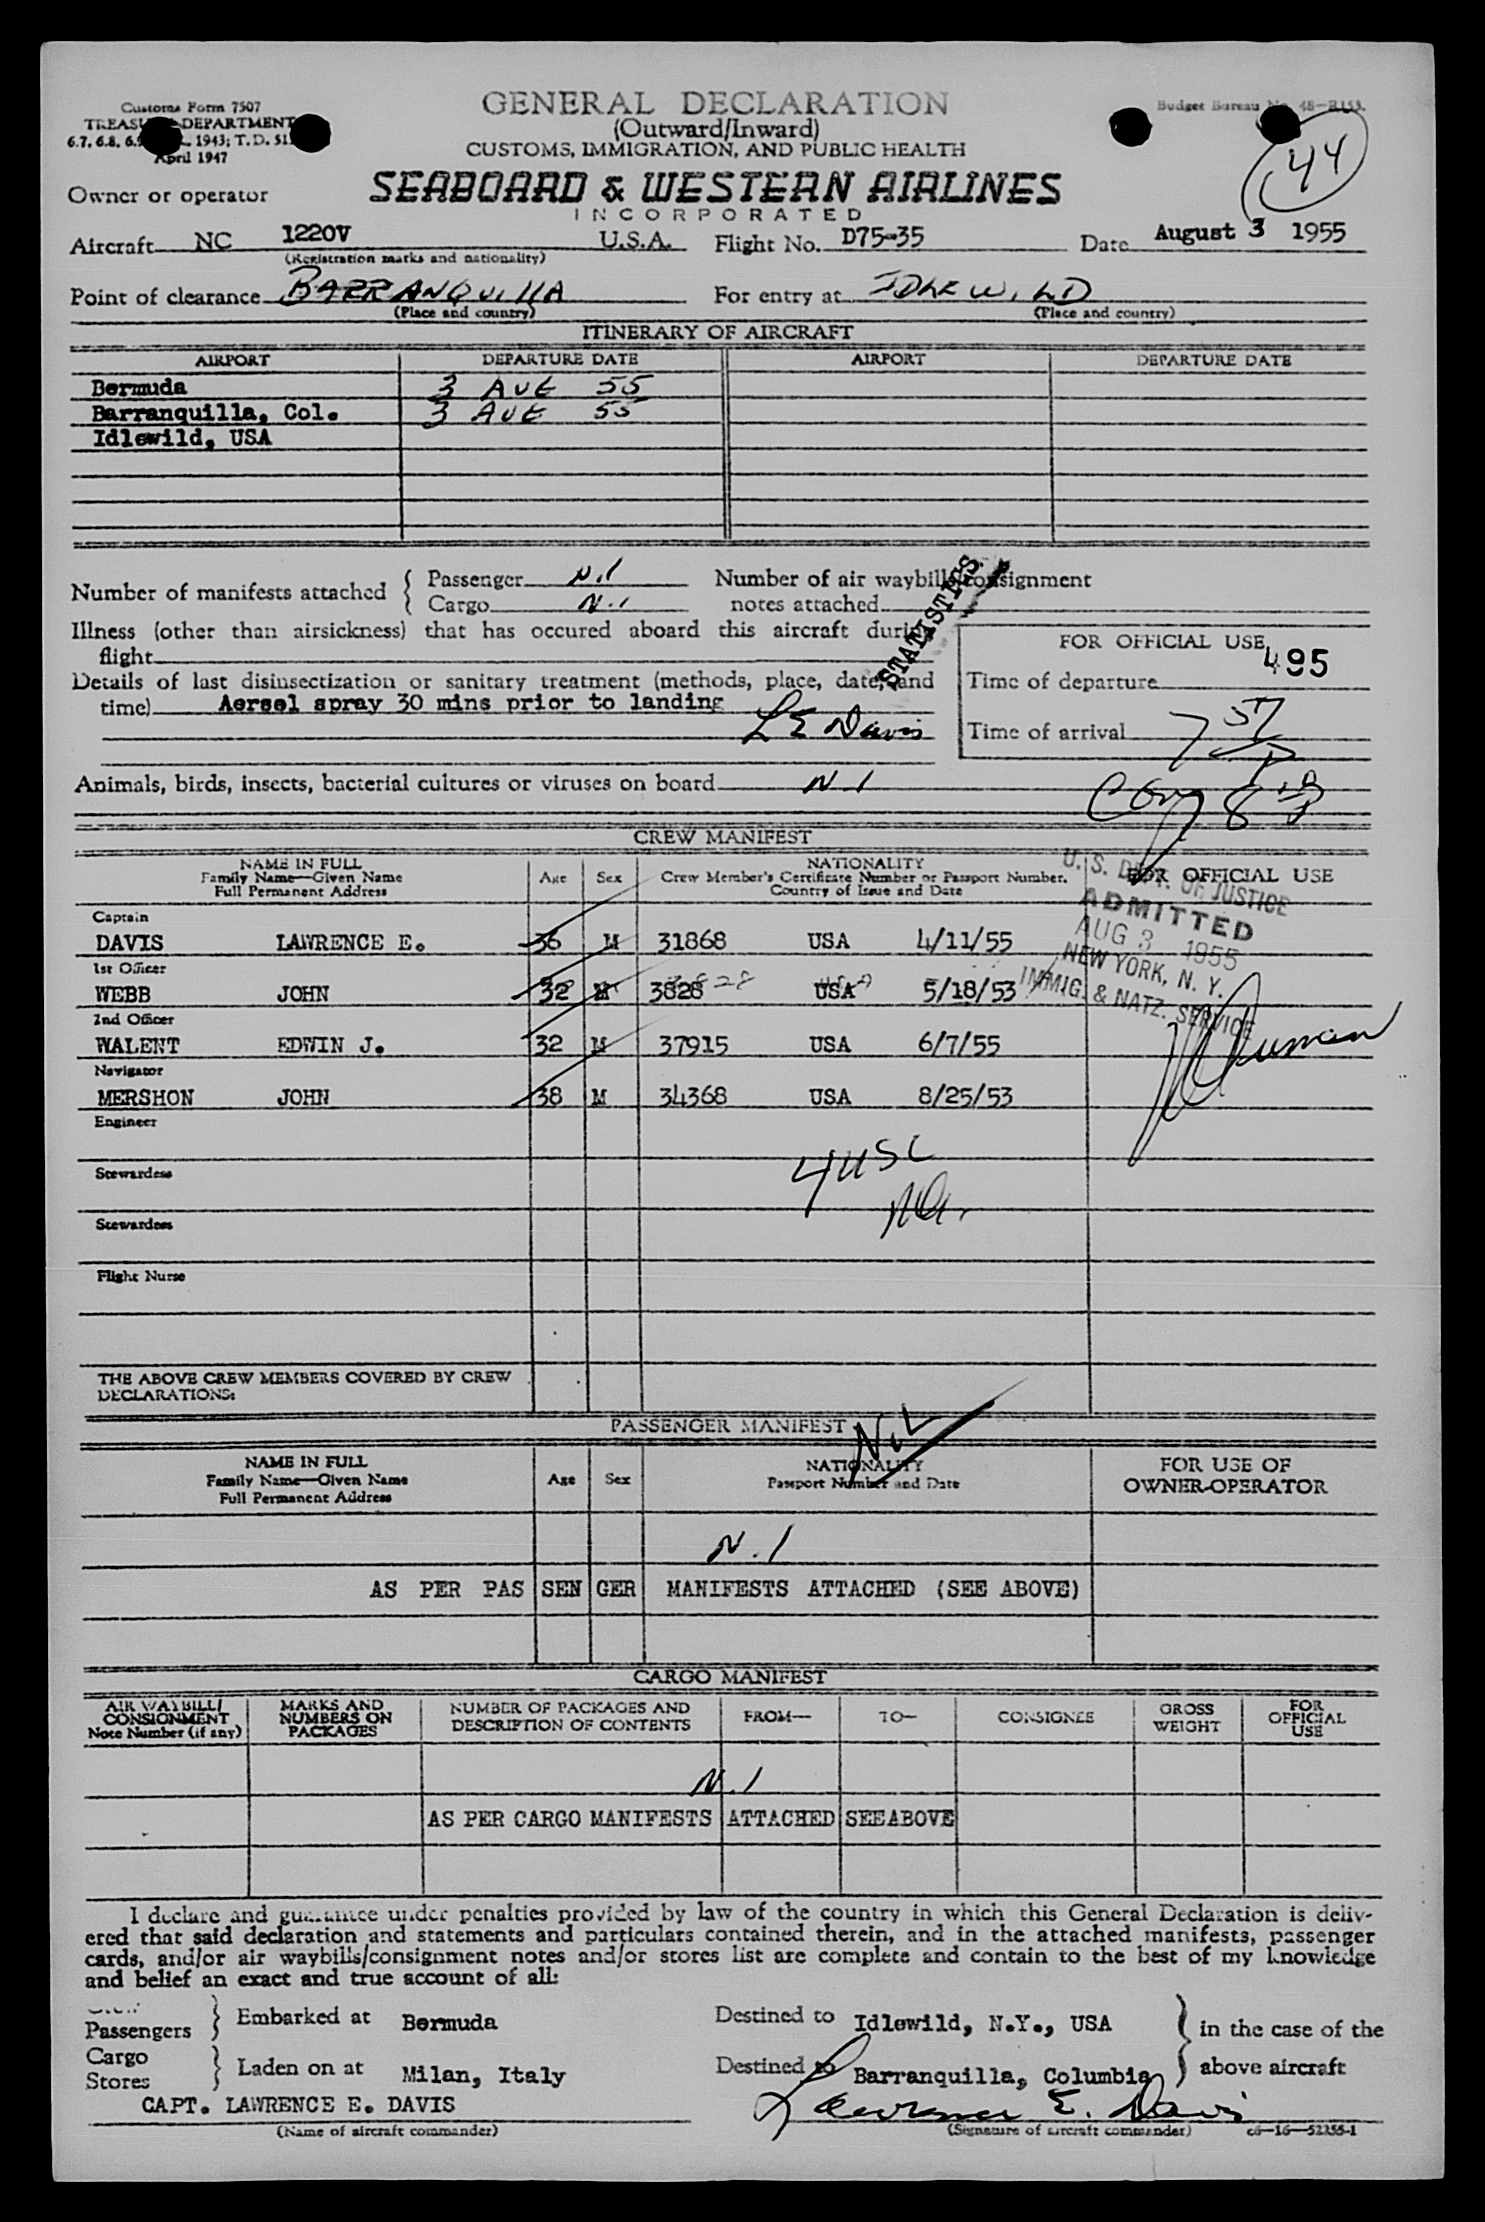 Customs Form 7507
GENERAL DECLARATION
Budget Bureau No. 48-R153.
TREASURY DEPARTMENT
(Outward/Inward)
44
6.7, 6.8, 1943; T.D.
April 1947
CUSTOMS, IMMIGRATION, AND PUBLIC HEALTH
Owner or operator SEABOARD & WESTERN AIRLINES
INCORPORATED
Aircraft NC 1220V U.S.A. Flight No. D75-35 Date August 3 1955
(Registration marks and nationality)
Point of clearance BARRANQUILLA For entry at IDLEWILD
(Place and country) (Place and country)
ITINERARY OF AIRCRAFT
AIRPORT DEPARTURE DATE AIRPORT DEPARTURE DATE
Bermuda 3 AUG 55
Barranquilla, Col. 3 AUG 55
Idlewild, USA
Number of manifests attached { Passenger Nil Number of air waybills/consignment
Cargo Nil notes attached
STATISTICS
Illness (other than airsickness) that has occured aboard this aircraft during
flight
FOR OFFICIAL USE
495
Details of last disinsectization or sanitary treatment (methods, place, date, and
time) Aersol spray 30 mins prior to landing
L E Davis
Time of departure
Time of arrival 7 57 P
Animals, birds, insects, bacterial cultures or viruses on board Nil
CREW MANIFEST
NAME IN FULL
Family Name—Given Name
Full Permanent Address
Age Sex
NATIONALITY
Crew Member's Certificate Number or Passport Number.
Country of Issue and Date
FOR OFFICIAL USE
U. S. DEPT. OF JUSTICE
ADMITTED
AUG 3 1955
NEW YORK, N. Y.
IMMIG. & NATZ. SERVICE
Captain
DAVIS LAWRENCE E. 36 M 31868 USA 4/11/55
1st Officer
WEBB JOHN 32 M 3828 USA 5/18/53
2nd Officer
WALENT EDWIN J. 32 M 37915 USA 6/7/55
Navigator
MERSHON JOHN 38 M 34368 USA 8/25/53
Engineer
4 USC
Stewardess
Stewardess
Flight Nurse
THE ABOVE CREW MEMBERS COVERED BY CREW
DECLARATIONS:
PASSENGER MANIFEST
NIL
NAME IN FULL
Family Name—Given Name
Full Permanent Address
Age Sex
NATIONALITY
Passport Number and Date
FOR USE OF
OWNER-OPERATOR
Nil
AS PER PAS SEN GER MANIFESTS ATTACHED (SEE ABOVE)
CARGO MANIFEST
AIR WAYBILL/
CONSIGNMENT
Note Number (if any)
MARKS AND
NUMBERS ON
PACKAGES
NUMBER OF PACKAGES AND
DESCRIPTION OF CONTENTS
FROM— TO— CONSIGNEE
GROSS
WEIGHT
FOR
OFFICIAL
USE
Nil
AS PER CARGO MANIFESTS ATTACHED SEE ABOVE
I declare and guarantee under penalties provided by law of the country in which this General Declaration is deliv-
ered that said declaration and statements and particulars contained therein, and in the attached manifests, passenger
cards, and/or air waybills/consignment notes and/or stores list are complete and contain to the best of my knowledge
and belief an exact and true account of all:
Crew
Passengers } Embarked at Bermuda Destined to Idlewild, N.Y., USA } in the case of the
Cargo
Stores } Laden on at Milan, Italy Destined to Barranquilla, Columbia } above aircraft
CAPT. LAWRENCE E. DAVIS Lawrence E. Davis
(Name of aircraft commander) (Signature of aircraft commander) c6—16—52255-1